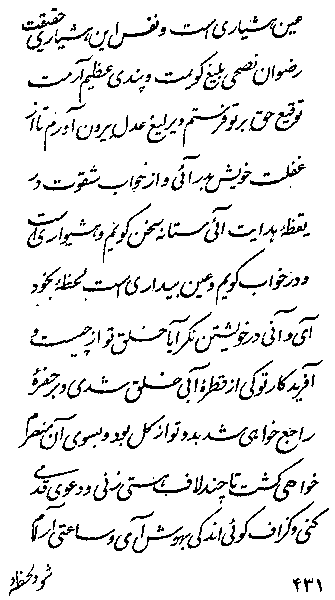 عین هشیاری است و نفس این هشیاری حقیقت
رضوان نصحی بلیغ گویمت و پندی عظیم آرمت
توقیع حق بر تو فرستم و یرلیغ عدل بیرون آورم تا از
غفلت خویش بدرآئی و از خواب شقوت در
یقظهٔ هدایت آئی مستانه سخن گویم و هشیواری است
و در خواب گویم و عین بیداری است لحظهٔ بخود
آی و آنی در خویشتن نگر آیا خلق تو از چیست و
آفریدگار تو کی از قطرهٔ آبی خلق شدی و بر حفرهٔ
راجع خواهی شد بدو تو از کل بود و بسوی آن منصرم
خواهی گشت تا چند لاف هستی زنی و دعوی قدمی
کنی و گزاف گوئی اندکی بهوش آی و ساعتی آرام
شو و لحظهٔ
۴۳۱